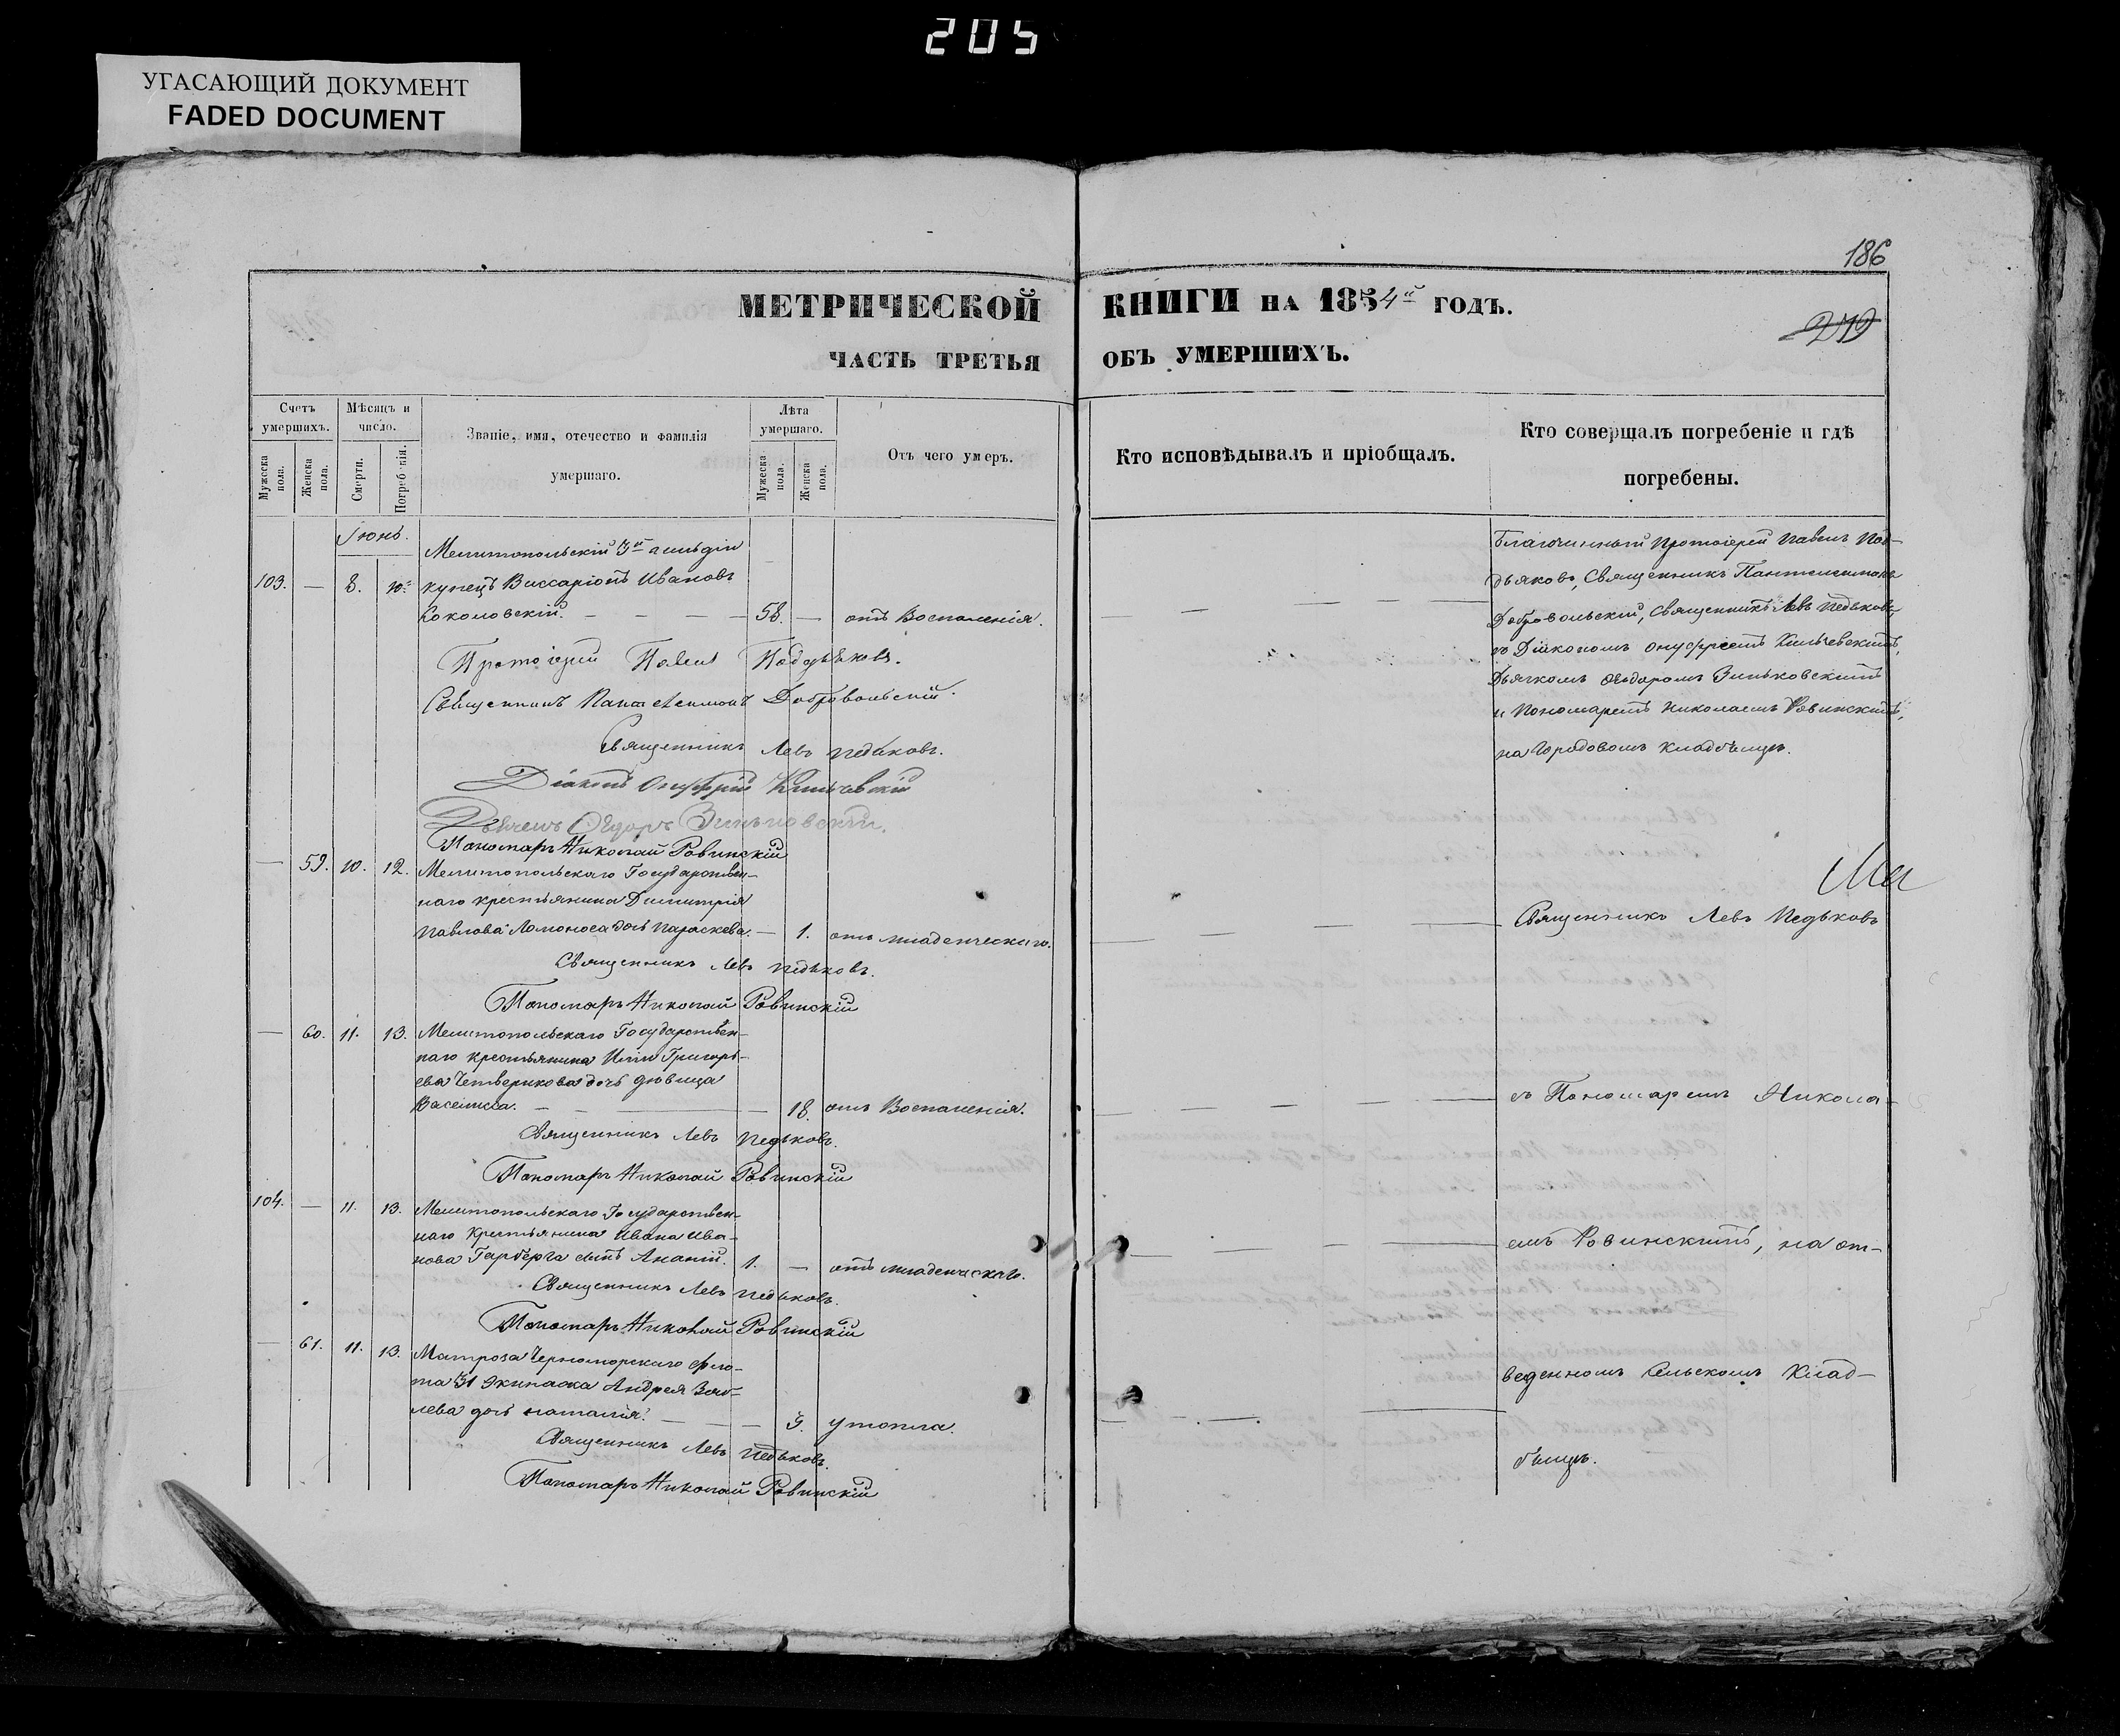 205
УГАСАЮЩИЙ ДОКУМЕНТ
FADED DOCUMENT
186
МЕТРИЧЕСКОЙ КНИГИ НА 1854й ГОДЪ.
ЧАСТЬ ТРЕТЬЯ ОБЪ УМЕРШИХЪ.
Счетъ умершихъ.
Мужеска пола.
Женска пола.
Мѣсяцъ и число.
Смерти.
Погребенія.
Званіе, имя, отечество и фамилія умершаго.
Лѣта умершаго.
Мужеска пола.
Женска пола.
Отъ чего умеръ.
Кто исповѣдывалъ и пріобщалъ.
Кто совершалъ погребеніе и гдѣ погребены.
Іюнь.
Мелитопольскій 3й гильдіи
103. — 8. 10. купецъ Виссаріонъ Ивановъ
Соколовскій. 58. — отъ Воспаленія.
Протоіерей Павелъ Поддьяковъ.
Священникъ Пантелеимонъ Добровольскій.
Священникъ Левъ Педьковъ.
Діаконъ Онуфрій
Дьячекъ Ѳедоръ Зиньковскій.
Пономарь Николай Ровинскій
— 59. 10. 12. Мелитопольскаго Государствен-
наго крестьянина Димитрія
Павлова Ломоноса дочь Параскева. — 1. отъ младенческаго.
Священникъ Левъ Педьковъ.
Пономарь Николай Ровинскій
— 60. 11. 13. Мелитопольскаго Государствен-
наго крестьянина Иліи Григорь-
ева Четверикова дочь дѣвица
Василиса. — 18. отъ Воспаленія.
Священникъ Левъ Педьковъ.
Пономарь Николай Ровинскій
104. — 11. 13. Мелитопольскаго Государствен-
наго Крестьянина Ивана Ива-
нова сынъ Ананій. 1. — отъ младенческаго.
Священникъ Левъ Педьковъ.
Пономарь Николай Ровинскій
— 61. 11. 13. Матроза Черноморскаго фло-
та 31 Экипажа Андрея Зяб-
лева дочь Наталія. — 3. утопла.
Священникъ Левъ Педьковъ.
Пономарь Николай Ровинскій
Благочинный Протоіерей Павелъ Под-
дьяковъ, Священникъ Пантелеимонъ
Добровольскій, Священникъ Левъ Педьковъ,
съ Діакономъ Онуфріемъ
Дьячкомъ Ѳедоромъ Зиньковскимъ
и Пономаремъ Николаемъ Ровинскимъ,
на Городовомъ кладбищѣ.
Священникъ Левъ Педьковъ
съ Пономаремъ Никола-
емъ Ровинскимъ, на от-
веденномъ Сельскомъ Клад-
бищѣ.